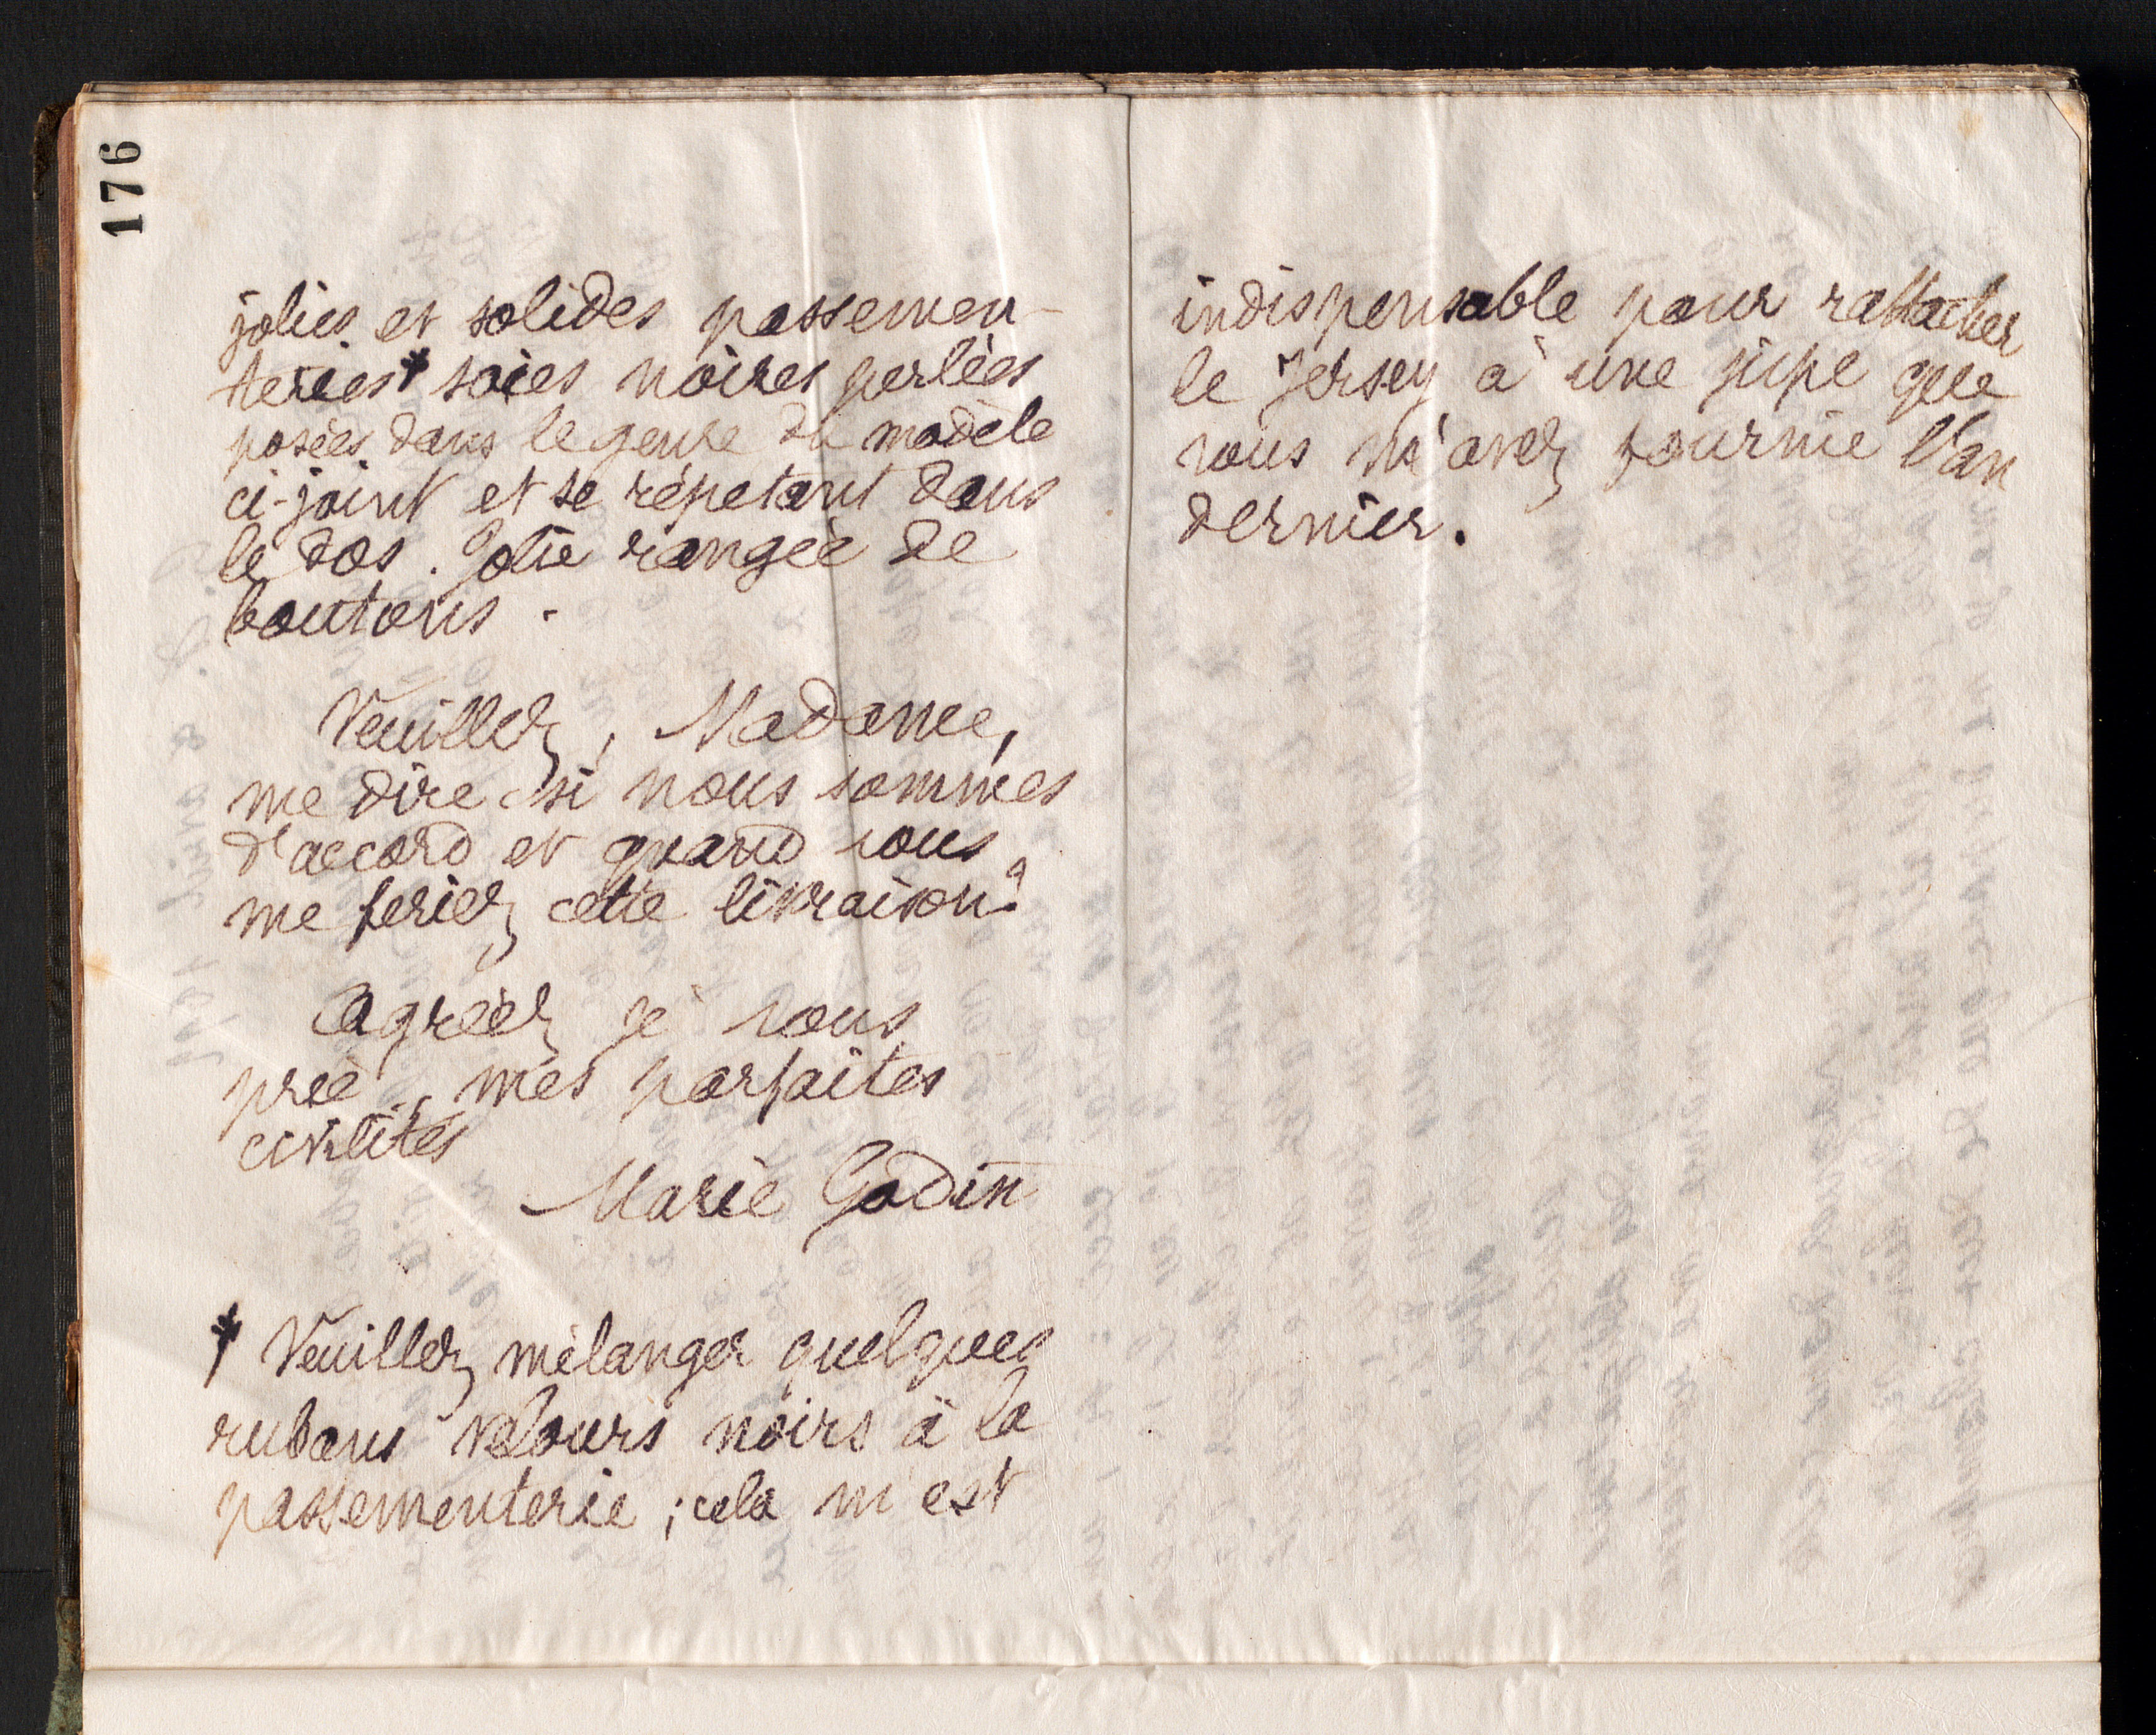 176
jolies et solides passemen-
teries* soies noires perlées
posées dans le genre du modèle
ci-joint et se répetant dans
le dos. Jolie rangée de
boutons.
Veuillez, Madame,
me dire si nous sommes
d'accord et quand vous
me feriez cette livraison?
Agréez je vous
prie, mes parfaites
civilités
Marie Godin
* Veuillez mélanger quelques
rubans velours noirs à la
passementerie ; cela m'est
indispensable pour rattacher
le Jersey à une jupe que
vous m'avez fournie l'an
dernier.